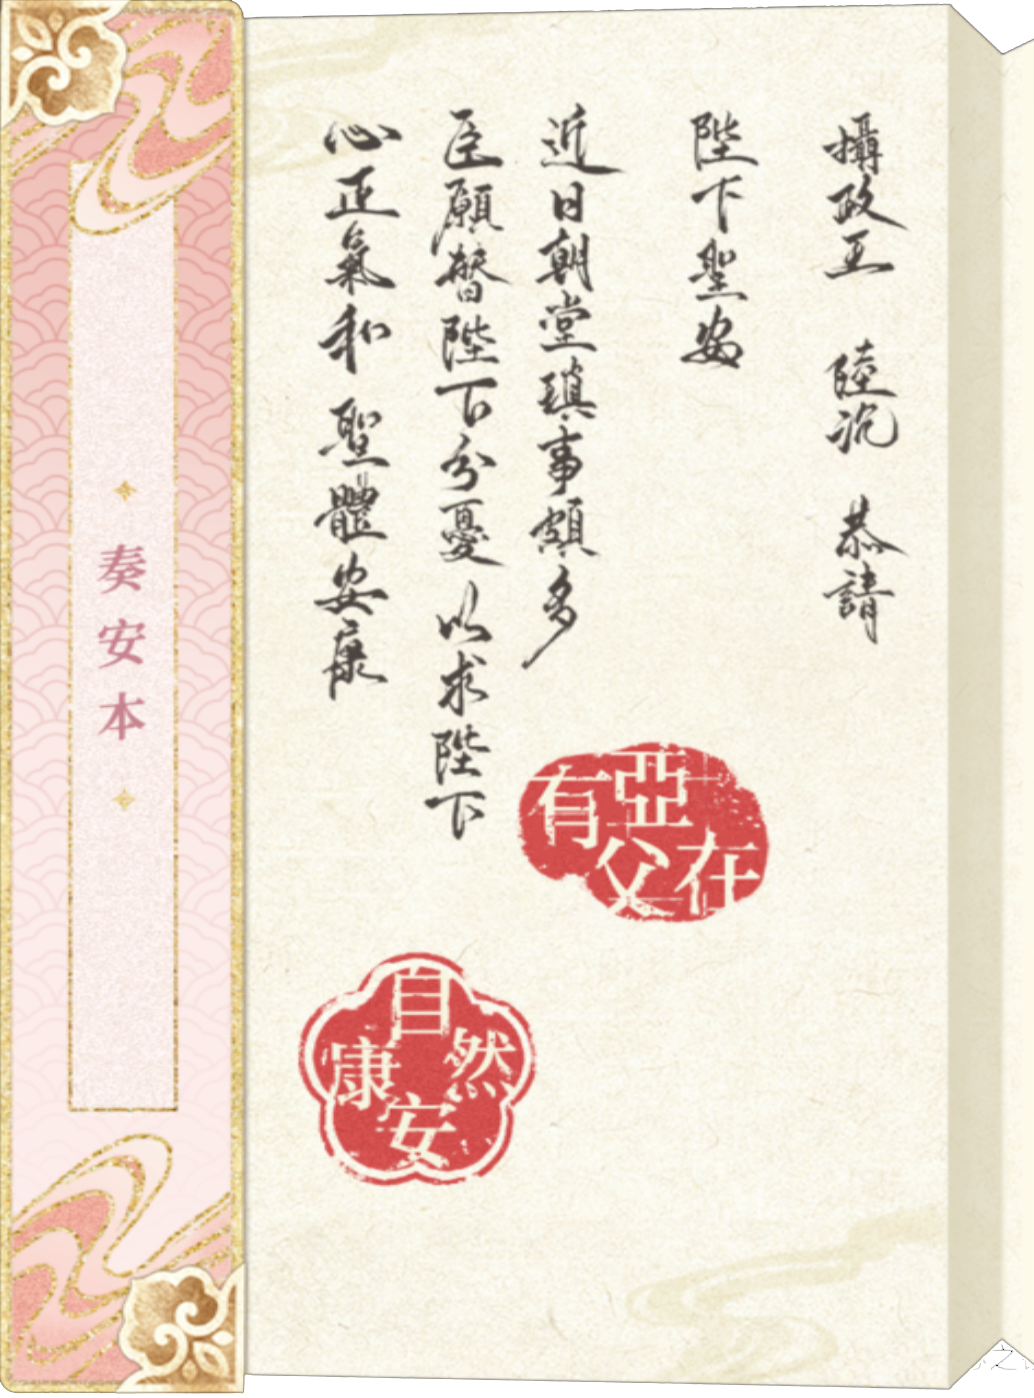 攝政王 陸沉 恭請
陛下聖安
近日朝堂瑣事頗多
臣願替陛下分憂 以求陛下
心正氣和 聖體安康
亞父在有
自然安康
奏安本